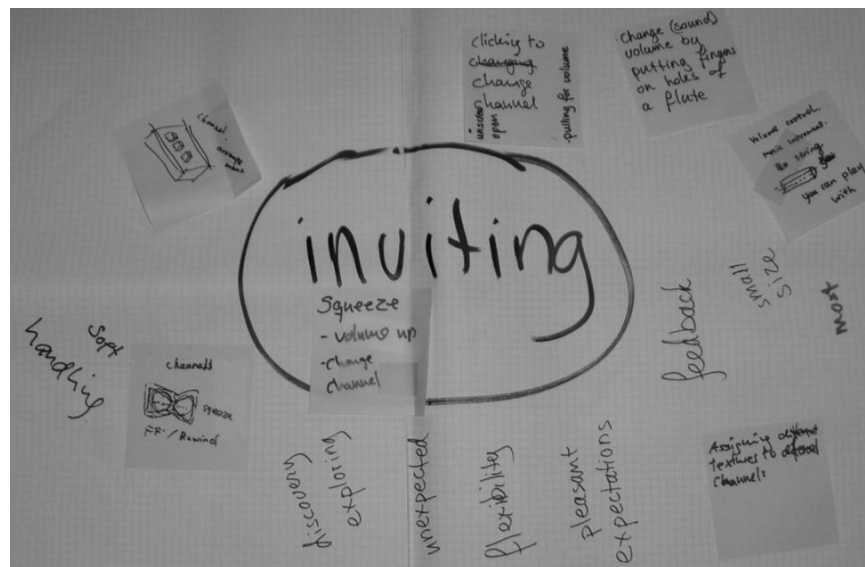 clicking to
changing
change
channel
unscrew
open
·pulling for volume
change (sound)
volume by
putting fingers
on holes of
a flute
Volume control.
music instrument.
string
you can play
with
channel
inviting
Squeeze
- volume up
- change
channel
soft
handling
channels
squeeze
FF / Rewind
feedback
small
size
most
discovery
exploring
unexpected
flexibility
pleasant
expectations
Assigning different
textures to different
channels